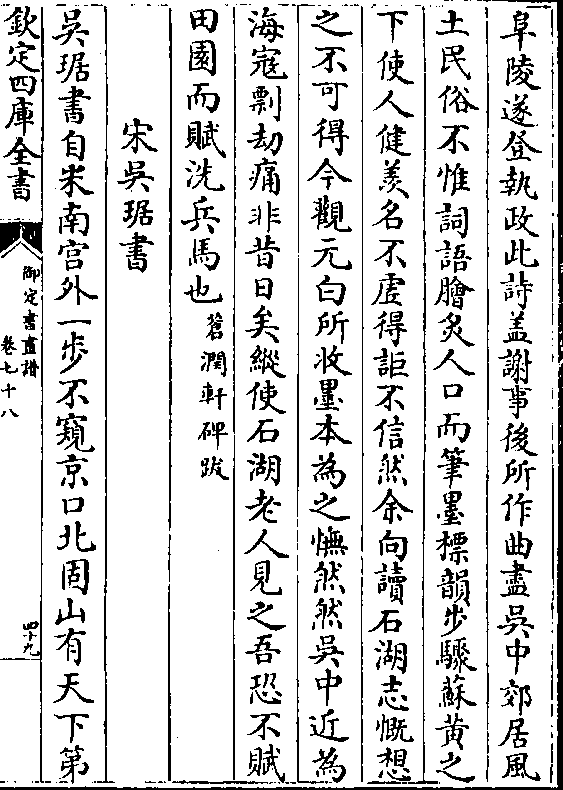 阜陵遂登執政此詩盖謝事後所作曲盡吳中郊居風
土民俗不惟詞語膾炙人口而筆墨標韻步驟蘇黃之
下使人健羡名不虛得詎不信然余向讀石湖志慨想
之不可得今觀元白所收墨本為之憮然然吳中近為
海寇剽劫痛非昔日矣縱使石湖老人見之吾恐不賦
田園而賦洗兵馬也蒼潤軒碑跋
宋吳琚書
吳琚書自米南宫外一步不窺京口北固山有天下第
欽定四庫全書
御定書畫譜
卷七十八
四十九